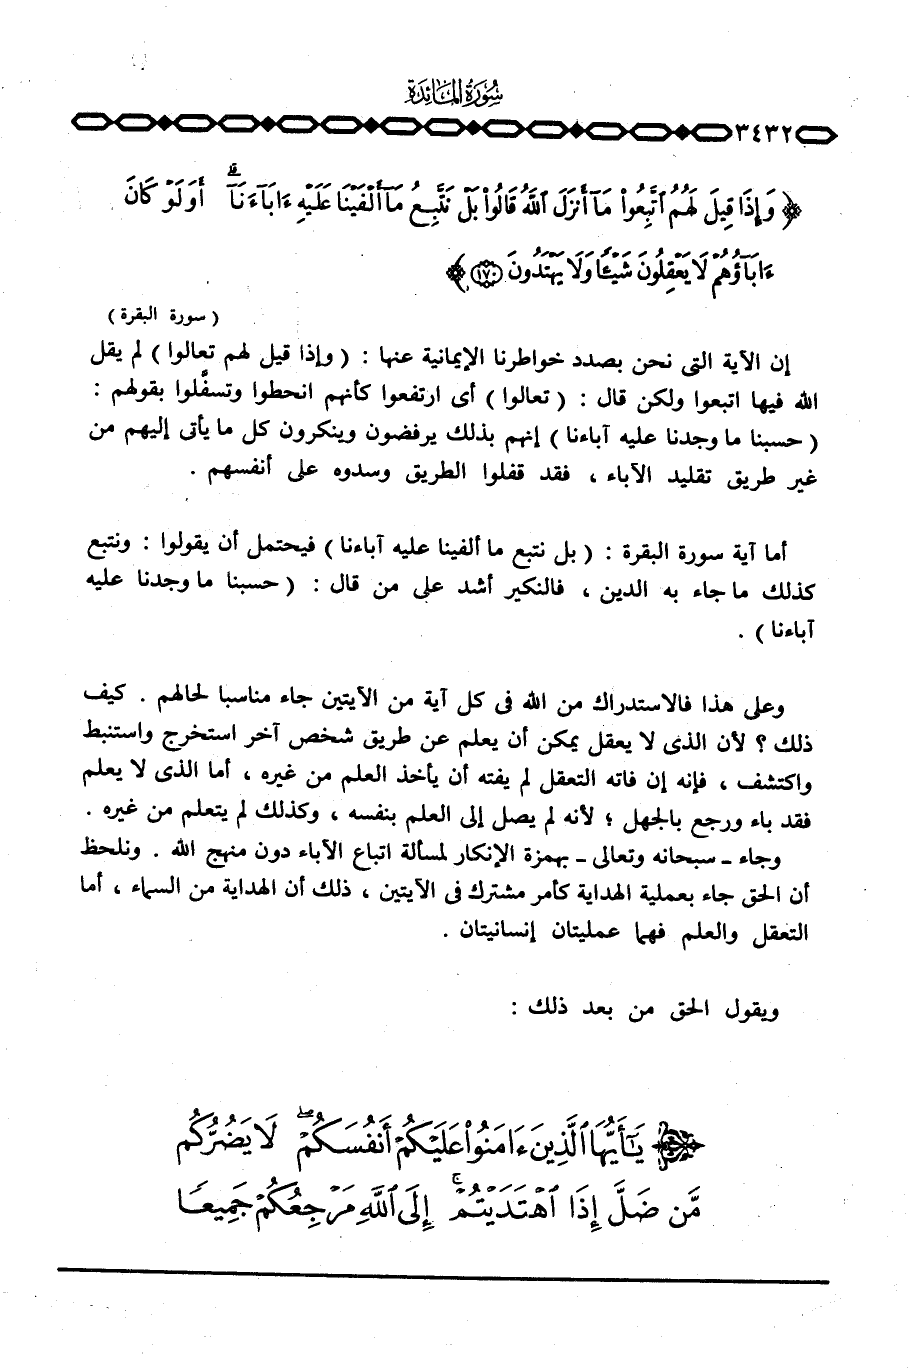 سُورَةُ المَائِدَة
٣٤٣٢
﴿ وَإِذَا قِيلَ لَهُمُ ٱتَّبِعُوا۟ مَآ أَنزَلَ ٱللَّهُ قَالُوا۟ بَلْ نَتَّبِعُ مَآ أَلْفَيْنَا عَلَيْهِ ءَابَآءَنَآ ۗ أَوَلَوْ كَانَ
ءَابَآؤُهُمْ لَا يَعْقِلُونَ شَيْـًٔا وَلَا يَهْتَدُونَ ١٧٠ ﴾
( سورة البقرة )
إن الآية التى نحن بصدد خواطرنا الإيمانية عنها : ( وإذا قيل لهم تعالوا ) لم يقل
الله فيها اتبعوا ولكن قال : ( تعالوا ) أى ارتفعوا كأنهم انحطوا وتسفَّلوا بقولهم :
( حسبنا ما وجدنا عليه آباءنا ) إنهم بذلك يرفضون وينكرون كل ما يأتى إليهم من
غير طريق تقليد الآباء ، فقد قفلوا الطريق وسدوه على أنفسهم .
أما آية سورة البقرة : ( بل نتبع ما ألفينا عليه آباءنا ) فيحتمل أن يقولوا : ونتبع
كذلك ما جاء به الدين ، فالنكير أشد على من قال : ( حسبنا ما وجدنا عليه
آباءنا ) .
وعلى هذا فالاستدراك من الله فى كل آية من الآيتين جاء مناسبا لحالهم . كيف
ذلك ؟ لأن الذى لا يعقل يمكن أن يعلم عن طريق شخص آخر استخرج واستنبط
واكتشف ، فإنه إن فاته التعقل لم يفته أن يأخذ العلم من غيره ، أما الذى لا يعلم
فقد باء ورجع بالجهل ؛ لأنه لم يصل إلى العلم بنفسه ، وكذلك لم يتعلم من غيره .
وجاء ـ سبحانه وتعالى ـ بهمزة الإنكار لمسألة اتباع الآباء دون منهج الله . ونلحظ
أن الحق جاء بعملية الهداية كأمر مشترك فى الآيتين ، ذلك أن الهداية من السماء ، أما
التعقل والعلم فهما عمليتان إنسانيتان .
ويقول الحق من بعد ذلك :
يَـٰٓأَيُّهَا ٱلَّذِينَ ءَامَنُوا۟ عَلَيْكُمْ أَنفُسَكُمْ ۖ لَا يَضُرُّكُم
مَّن ضَلَّ إِذَا ٱهْتَدَيْتُمْ ۚ إِلَى ٱللَّهِ مَرْجِعُكُمْ جَمِيعًا